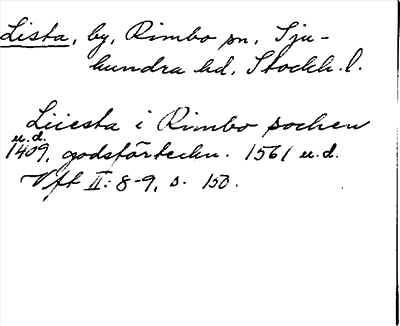 Lista, by, Rimbo sn, Sju-
hundra hd, Stockh. l.
Liiesta i Rimbo socken
u.d.
1409, godsförteckn. 1561 u.d.
Vft II: 8-9, s. 150.